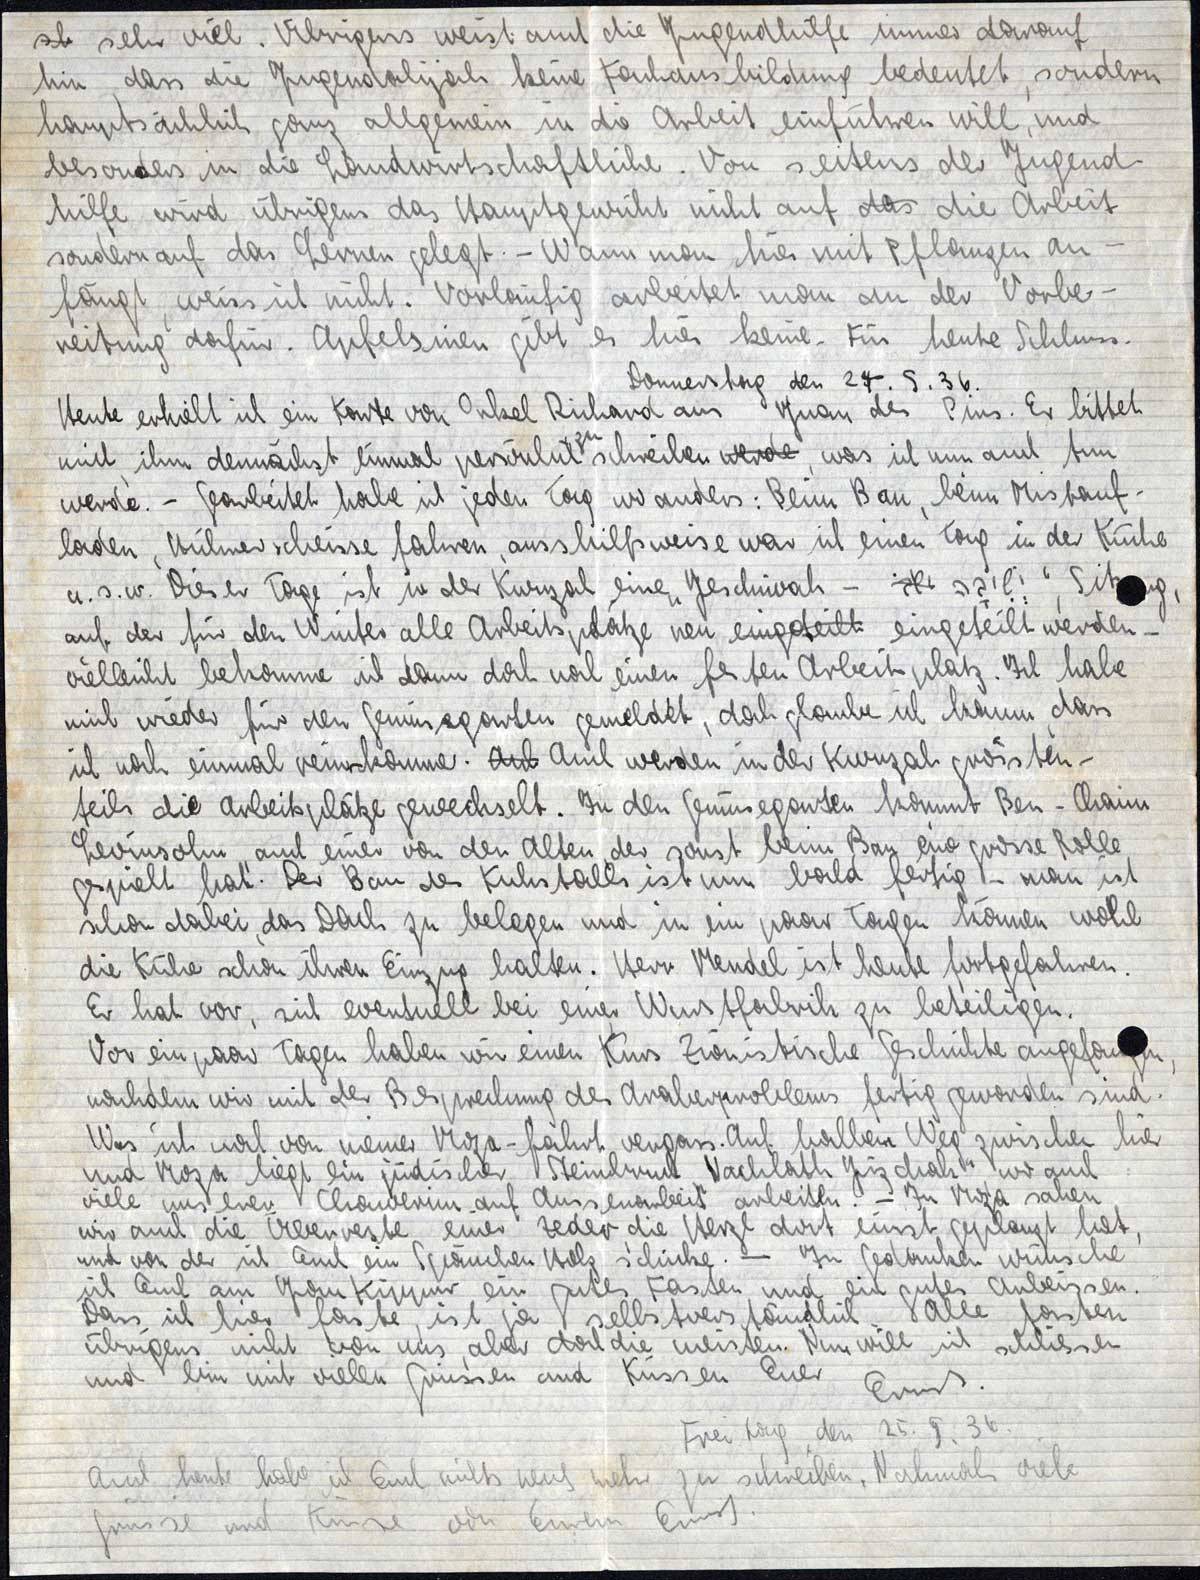 sehr viel. Übrigens weist auch die Jugendhilfe immer darauf
hin, dass die Jugendalijah keine Fachausbildung bedeutet, sondern
hauptsächlich ganz allgemein in die Arbeit einführen will, und
besonders in die Landwirtschaftliche. Von seitens der Jugend-
hilfe wird übrigens das Hauptgewicht nicht auf das die Arbeit
sondern auf das Lernen gelegt. - Wann man hier mit Pflanzen an-
fängt, weiss ich nicht. Vorläufig arbeitet man an der Vorbe-
reitung dafür. Apfelsinen gibt es hier keine. Für heute Schluss.
Donnerstag den 24.9.36.
Heute erhielt ich ein Karte von Onkel Richard aus Juan des Pins. Er bittet
mich, ihm demnächst einmal persönlich zu schreiben werde, was ich nun auch tun
werde. - Gearbeitet habe ich jeden Tag wo anders: Beim Bau, beim Mistauf-
laden, Hühnerscheisse fahren, aushilfsweise war ich einen Tag in der Küche
u.s.w. Dieser Tage ist in der Kwuzah eine „Jeschiwah - ישיבה", Sitzung,
auf der für den Winter alle Arbeitsplätze neu eingeteilt eingeteilt werden -
vielleicht bekomme ich dann doch noch einen festen Arbeitsplatz. Ich habe
mich wieder für den Gemüsegarten gemeldet, doch glaube ich kaum, dass
ich noch einmal reinkomme. Auch Auch werden in der Kwuzah grössten-
teils die Arbeitsplätze gewechselt. In den Gemüsegarten kommt Ben-Chaim
Levinsohn, auch einer von den Alten, der sonst beim Bau eine grosse Rolle
gespielt hat. Der Bau des Kuhstalls ist nun bald fertig - man ist
schon dabei, das Dach zu belegen und in ein paar Tagen können wohl
die Kühe schon ihren Einzug halten. Herr Mendel ist heute fortgefahren.
Er hat vor, sich eventuell bei einer Wurstfabrik zu beteiligen.
Vor ein paar Tagen haben wir einen Kurs Zionistische Geschichte angefangen,
nachdem wir mit der Besprechung des Araberproblems fertig geworden sind.
Was ich noch von meiner Moza-fahrt vergass. Auf halbem Weg zwischen hier
und Moza liegt ein jüdischer Steinbruch „Nachlath Jizchak" wo auch
viele unserer Chawerim auf Aussenarbeit arbeiten. - In Moza sahen
wir auch die Überreste einer Zeder die Herzl dort einst gepflanzt hat,
und von der ich Euch ein Spänchen Holz schicke. - In Gedanken wünsche
ich Euch am Jom Kippur ein gutes Fasten und ein gutes Anbeissen.
Dass ich hier faste, ist ja selbstverständlich. Alle fasten
übrigens nicht von uns, aber doch die meisten. Nun will ich schliessen
und bin mit vielen Grüssen und Küssen Euer Ernst.
Freitag, den 25.9.36.
Auch heute habe ich Euch nichts mehr zu schreiben. Nochmals viele
Grüsse und Küsse von Eurem Ernst.